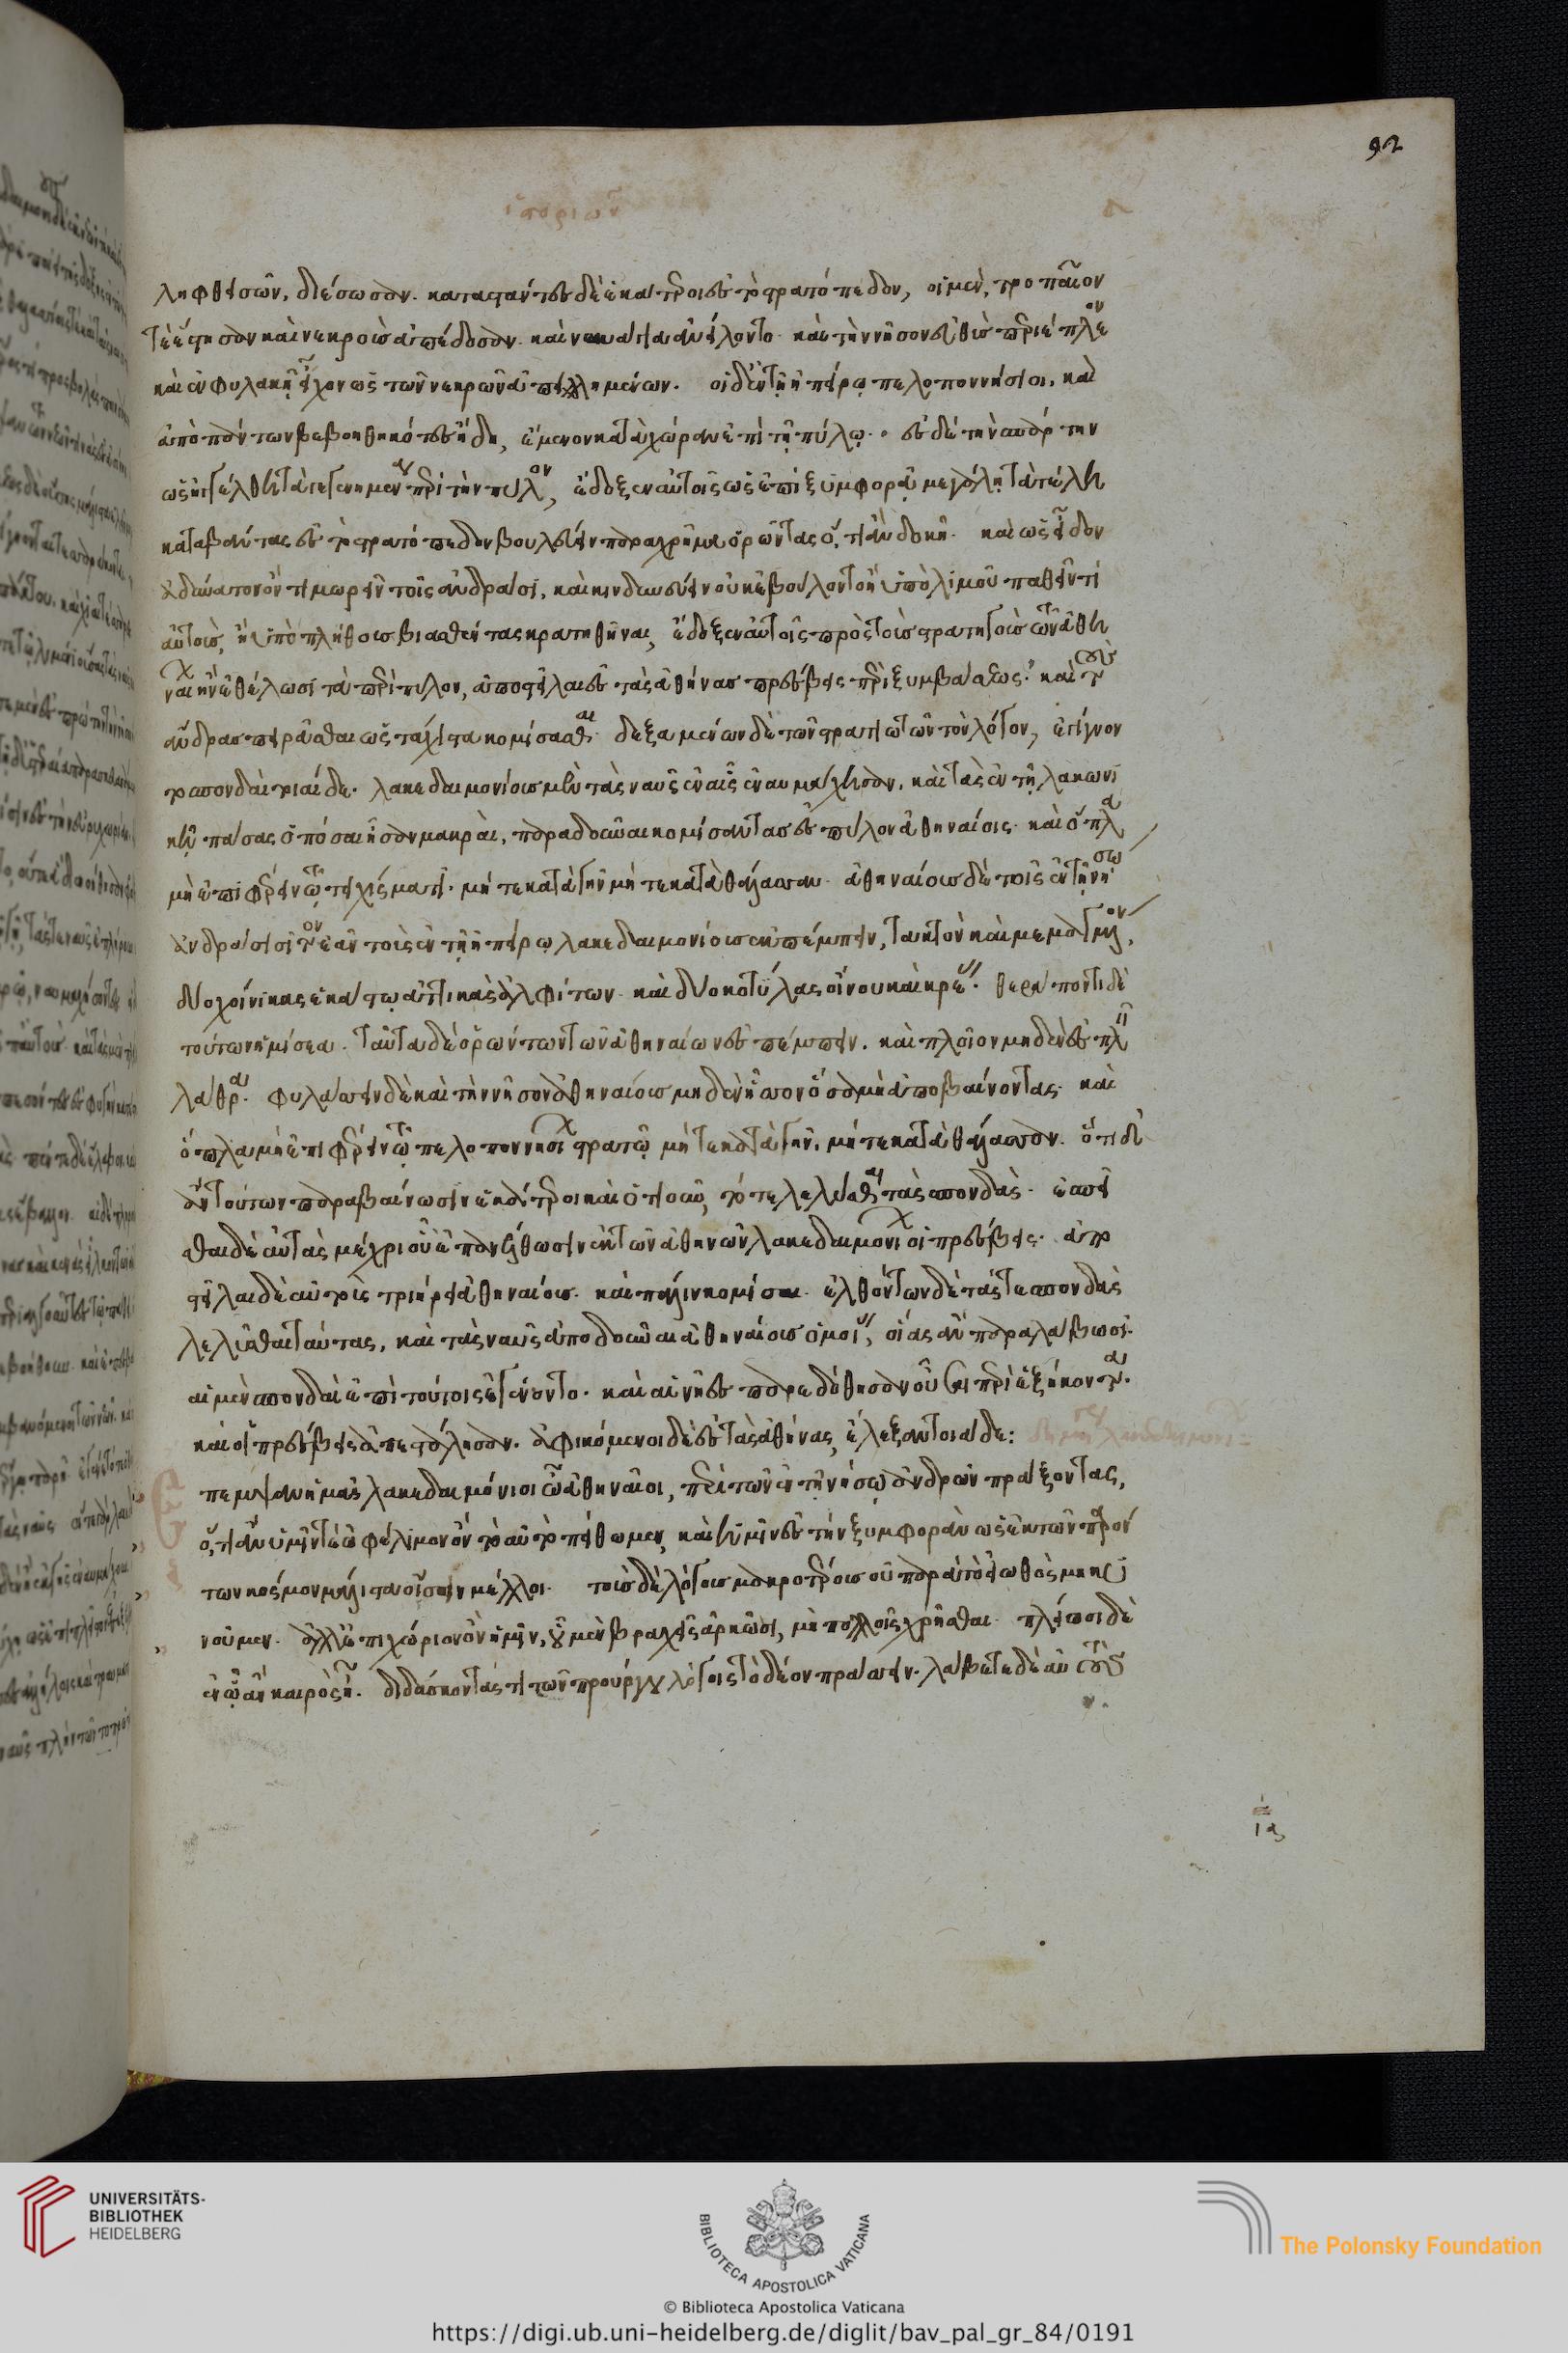 92
ληφθεισῶν, διέσωσαν. καταστάντες δὲ ἑκάτεροι ἐς τὸ στρατόπεδον, οἱ μὲν, τροπαῖον
τὲ ἔστησαν καὶ νεκροὺς ἀπέδοσαν. καὶ ναυάγια ἀνείλοντο. καὶ τὴν νῆσον εὐθὺς περιέπλεον
καὶ ἐν φυλακῇ εἶχον ὡς τῶν νεκρῶν ἀπειλημμένων. οἱ δ' ἐν τῇ ἠπείρῳ πελοποννήσιοι, καὶ
ἀπὸ πάντων βεβοηθηκότες ἤδη, ἔμενον κατὰ χώραν ἐπὶ τῇ πύλῳ. ἐς δὲ τὴν σπάρτην
ὡς ἠγγέλθη τὰ γεγενημένα περὶ τὴν πύλον, ἔδοξεν αὐτοῖς ὡς ἐπὶ ξυμφορᾷ μεγάλῃ τὰ τέλη
καταβάντας ἐς τὸ στρατόπεδον βουλεύειν παραχρῆμα ὁρῶντας ὅ,τι ἂν δοκῇ. καὶ ὡς εἶδον
ἀδύνατον ὂν τιμωρεῖν τοῖς ἀνδράσι, καὶ κινδυνεύειν οὐκ ἐβούλοντο ἢ ὑπὸ λιμοῦ παθεῖν τί
αὐτοὺς, ἢ ὑπὸ πλήθους βιασθέντας κρατηθῆναι, ἔδοξεν αὐτοῖς πρὸς τοὺς στρατηγοὺς τῶν ἀθη
ναίων ἢν ἐθέλωσι τὰ περὶ πύλον, ἀποστεῖλαι ἐς τὰς ἀθήνας πρέσβεις περὶ ξυμβάσεως. καὶ τοὺς
ἄνδρας πειρᾶσθαι ὡς τάχιστα κομίσασθαι. δεξαμένων δὲ τῶν στρατιωτῶν τὸν λόγον, ἐγίγνον
το σπονδαὶ τοιαίδε. λακεδαιμονίους μὲν τὰς ναῦς ἐν αἷς ἐναυμάχησαν, καὶ τὰς ἐν τῇ λακωνι
κῇ πάσας ὁπόσαι ἦσαν μακραὶ, παραδοῦναι κομίσαντας ἐς πύλον ἀθηναίοις. καὶ ὅπλα
μὴ ἐπιφέρειν τῷ τειχίσματι. μήτε κατὰ γῆν μήτε κατὰ θάλασσαν. ἀθηναίους δὲ τοῖς ἐν τῇ νήσῳ
ἀνδράσι σῖτον ἐᾶν τοὺς ἐν τῇ ἠπείρῳ λακεδαιμονίους ἐκπέμπειν, τακτὸν καὶ μεμαγμένον,
δύο χοίνικας ἑκάστῳ ἀττικὰς ἀλφίτων. καὶ δύο κοτύλας οἴνου καὶ κρέας. θεράποντι δὲ
τούτων ἡμίσεα. ταῦτα δὲ ὁρώντων τῶν ἀθηναίων ἐσπέμπειν. καὶ πλοῖον μηδὲν ἐσπλεῖν
λάθρα. φυλάσσειν δὲ καὶ τὴν νῆσον ἀθηναίους μηδὲν ἧσσον ὅσα μὴ ἀποβαίνοντας. καὶ
ὅπλα μὴ ἐπιφέρειν τῷ πελοποννησίων στρατῷ μήτε κατὰ γῆν, μήτε κατὰ θάλασσαν. ὅτι δ'
ἂν τούτων παραβαίνωσιν ἑκάτεροι καὶ ὁτιοῦν, τότε λελύσθαι τὰς σπονδάς. ἐσπεῖ
σθαι δὲ αὐτὰς μέχρι οὗ ἐπανέλθωσιν ἐκ τῶν ἀθηνῶν λακεδαιμονίων οἱ πρέσβεις. ἀπο
στεῖλαι δὲ αὐτοὺς τριήρει ἀθηναίους. καὶ πάλιν κομίσαι. ἐλθόντων δὲ τάς τε σπονδὰς
λελύσθαι ταύτας, καὶ τὰς ναῦς ἀποδοῦναι ἀθηναίους ὁμοίας, οἵας ἂν παραλάβωσι.
αἱ μὲν σπονδαὶ ἐπὶ τούτοις ἐγένοντο. καὶ αἱ νῆες παρεδόθησαν οὖσαι περὶ ἑξήκοντα.
καὶ οἱ πρέσβεις ἀπεστάλησαν. ἀφικόμενοι δὲ ἐς τὰς ἀθήνας, ἔλεξαν τοιάδε:
ἔπεμψαν ἡμᾶς λακεδαιμόνιοι ὦ ἀθηναῖοι, περὶ τῶν ἐν τῇ νήσῳ ἀνδρῶν πράξοντας,
ὅ,τι ἂν ὑμῖν τὲ ὠφέλιμον ὂν τὸ αὐτὸ πείθωμεν, καὶ ἡμῖν ἐς τὴν ξυμφορὰν ὡς ἐκ τῶν παρόν
των κόσμον μάλιστα οἴσειν μέλλοι. τοὺς δὲ λόγους μακροτέρους οὐ παρὰ τὸ εἰωθὸς μηκυ
νοῦμεν. ἀλλ' ἐπιχώριον ὂν ἡμῖν, οὗ μὲν βραχεῖς ἀρκῶσι, μὴ πολλοῖς χρῆσθαι. πλείοσι δὲ
ἐν ᾧ ἂν καιρὸς ᾖ. διδάσκοντάς τι τῶν προύργου λόγοις τὸ δέον πράσσειν. λάβετε δὲ αὐτοὺς
UNIVERSITÄTS-
BIBLIOTHEK
HEIDELBERG
BIBLIOTECA APOSTOLICA VATICANA
The Polonsky Foundation
© Biblioteca Apostolica Vaticana
https://digi.ub.uni-heidelberg.de/diglit/bav_pal_gr_84/0191